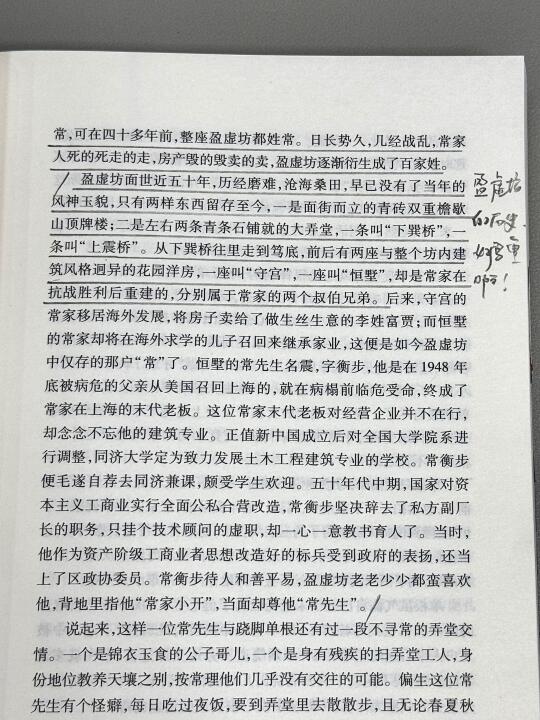 常,可在四十多年前,整座盈虚坊都姓常。日长势久,几经战乱,常家
人死的死走的走,房产毁的毁卖的卖,盈虚坊逐渐衍生成了百家姓。
盈虚坊面世近五十年,历经磨难,沧海桑田,早已没有了当年的
风神玉貌,只有两样东西留存至今,一是面街而立的青砖双重檐歇
山顶牌楼;二是左右两条青条石铺就的大弄堂,一条叫“下巽桥”,一
条叫“上震桥”。从下巽桥往里走到笃底,前后有两座与整个坊内建
筑风格迥异的花园洋房,一座叫“守宫”,一座叫“恒墅”,却是常家在
抗战胜利后重建的,分别属于常家的两个叔伯兄弟。后来,守宫的
常家移居海外发展,将房子卖给了做生丝生意的李姓富贾;而恒墅
的常家却将在海外求学的儿子召回来继承家业,这便是如今盈虚坊
中仅存的那户“常”了。恒墅的常先生名震,字衡步,他是在1948年
底被病危的父亲从美国召回上海的,就在病榻前临危受命,终成了
常家在上海的末代老板。这位常家末代老板对经营企业并不在行,
却念念不忘他的建筑专业。正值新中国成立后对全国大学院系进
行调整,同济大学定为致力发展土木工程建筑专业的学校。常衡步
便毛遂自荐去同济兼课,颇受学生欢迎。五十年代中期,国家对资
本主义工商业实行全面公私合营改造,常衡步坚决辞去了私方副厂
长的职务,只挂个技术顾问的虚职,却一心一意教书育人了。当时,
他作为资产阶级工商业者思想改造好的标兵受到政府的表扬,还当
上了区政协委员。常衡步待人和善平易,盈虚坊老老少少都蛮喜欢
他,背地里指他“常家小开”,当面却尊他“常先生”。
说起来,这样一位常先生与跷脚单根还有过一段不寻常的弄堂交
情。一个是锦衣玉食的公子哥儿,一个是身有残疾的扫弄堂工人,身
份地位教养天壤之别,按常理他们几乎没有交往的可能。偏生这位常
先生有个怪癖,每日吃过夜饭,要到弄堂里去散散步,且无论春夏秋
盈虚坊
的历史
好厚重
啊!